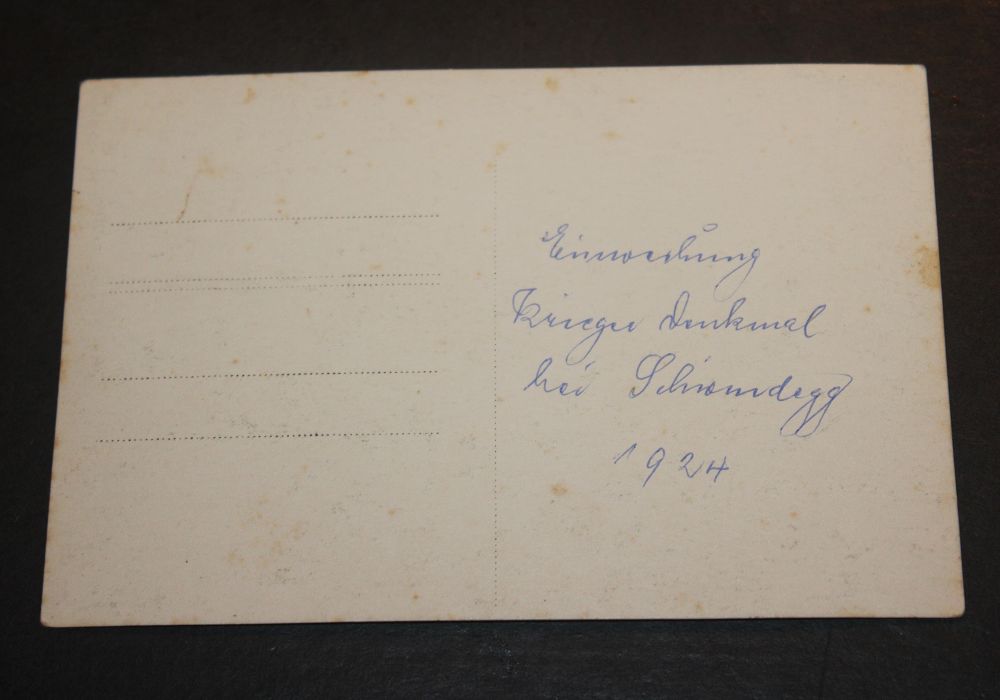 Einweihung
Krieger Denkmal
bei Schwandegg
1924